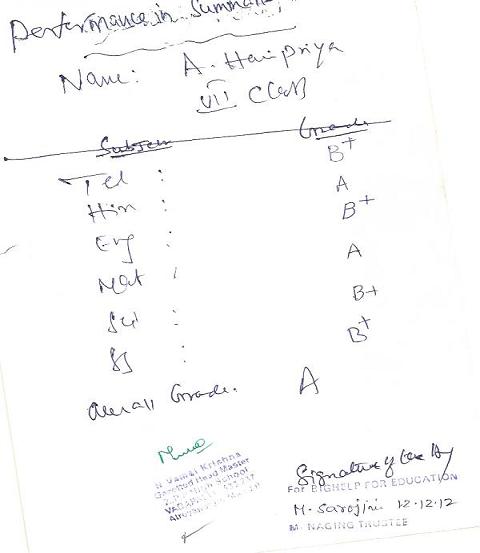 Performance in Summati
Name: A. Haripriya
VII Class
Subject Grade
Tel : B+
Hin : A
Eng : B+
Mat : A
Sci : B+
SS : B+
Overall Grade. A
Krishna
Gazetted Head Master
School
Signature of the
For BIGHELP FOR EDUCATION
M. Sarojini 12.12.12
M NAGING TRUSTEE